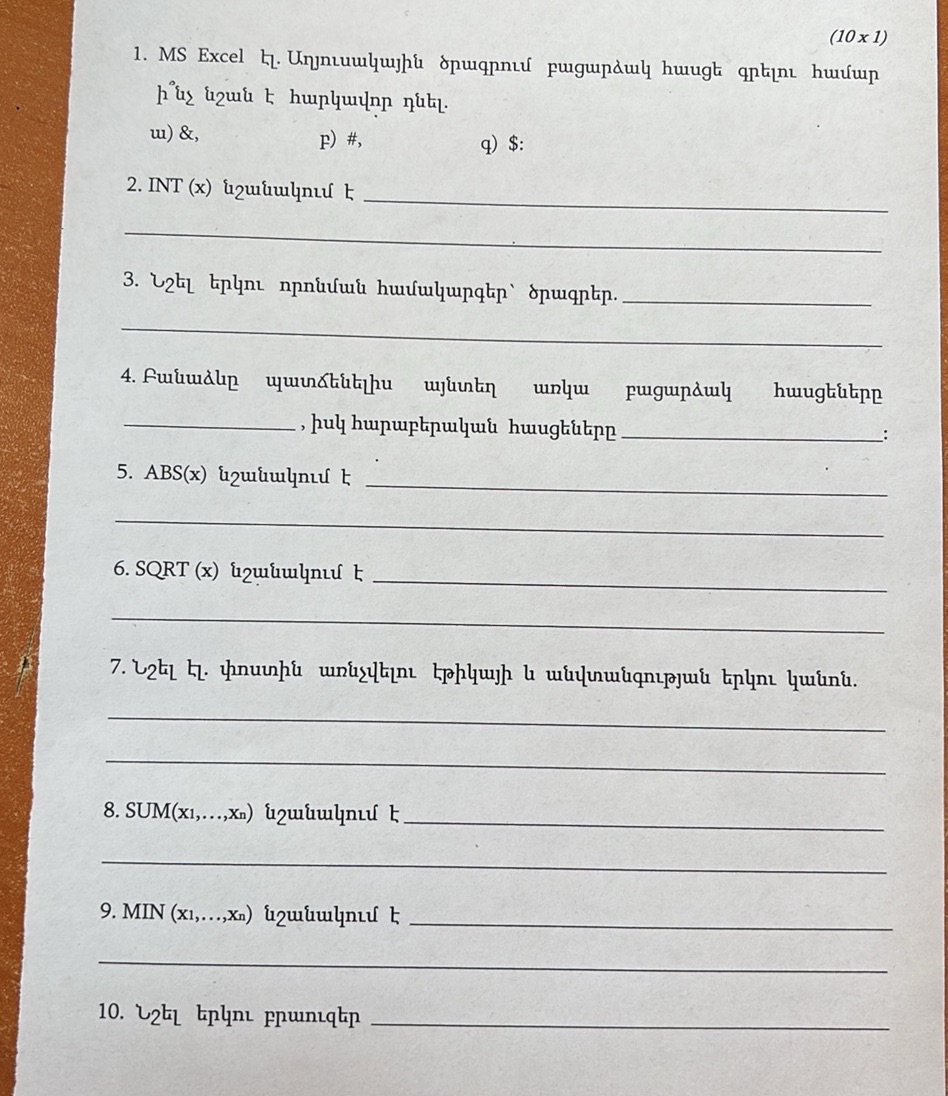 (10 x 1)
1. MS Excel էլ. Աղյուսակային ծրագրում բացարձակ հասցե գրելու համար
ի՞նչ նշան է հարկավոր դնել.
ա) &, բ) #, գ) $:
2. INT (x) նշանակում է ________________
________________
3. Նշել երկու որոնման համակարգեր՝ ծրագրեր. ________________
________________
4. Բանաձևը պատճենելիս այնտեղ առկա բացարձակ հասցեները
________________, իսկ հարաբերական հասցեները ________________:
5. ABS(x) նշանակում է ________________
________________
6. SQRT (x) նշանակում է ________________
________________
7. Նշել էլ. փոստին առնչվելու էթիկայի և անվտանգության երկու կանոն.
________________
________________
8. SUM(x1,…,xn) նշանակում է ________________
________________
9. MIN (x1,…,xn) նշանակում է ________________
________________
10. Նշել երկու բրաուզեր ________________